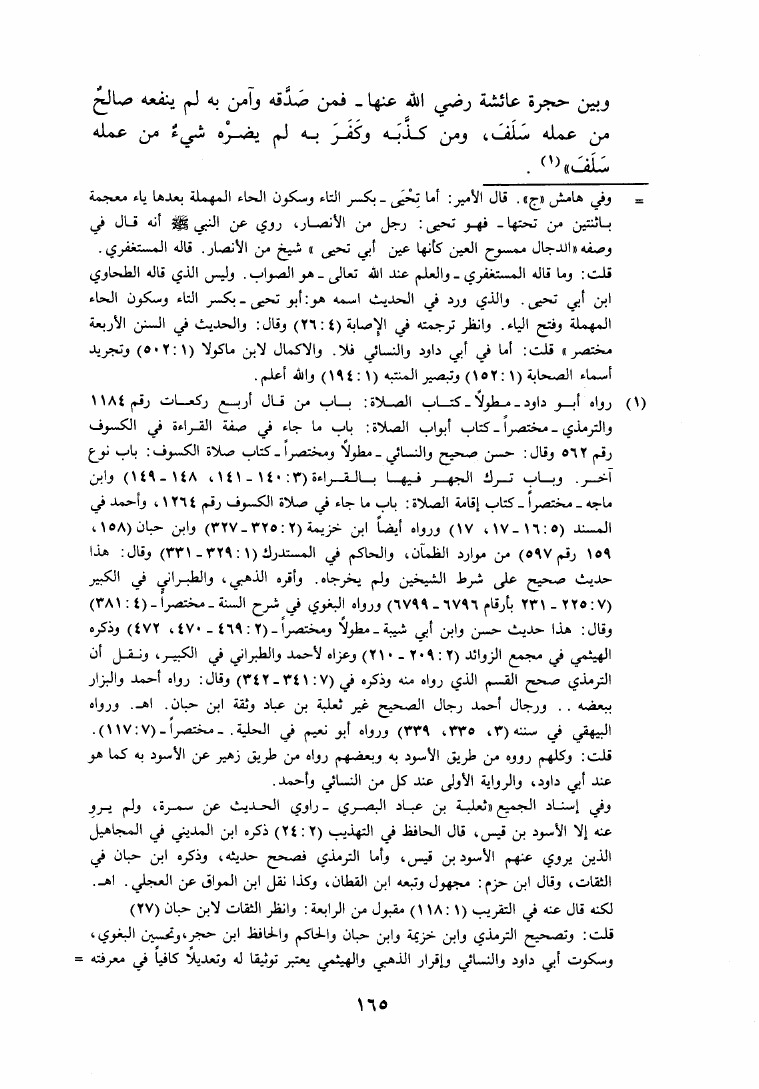 وبين حجرة عائشة رضي الله عنها ـ فمن صَدَّقه وآمن به لم ينفعه صالحٌ
من عمله سَلَفَ، ومن كـذَّبَـه وكَفَـرَ بـه لم يضـرْه شيءٌ من عمله
سَلَفَ»(١) .
= وفي هامش «ج». قال الأمير: أما تِحْيَى ـ بكسر التاء وسكون الحاء المهملة بعدها ياء معجمة
بـاثنتين من تحتهـا ـ فهـو تحيى: رجل من الأنصـار، روي عن النبي ﷺ أنه قـال في
وصفه «الدجال ممسوح العين كأنها عين أبي تحيى » شيخ من الأنصار. قاله المستغفري.
قلت: وما قاله المستغفري ـ والعلم عند الله تعالى ـ هو الصواب. وليس الذي قاله الطحاوي
ابن أبي تحيى. والذي ورد في الحديث اسمه هو: أبو تحيى ـ بكسر التاء وسكون الحاء
المهملة وفتح الياء. وانظر ترجمته في الإصابة (٤: ٢٦) وقال: والحديث في السنن الأربعة
مختصر » قلت: أما في أبي داود والنسائي فلا. والاكمال لابن ماكولا (١: ٥٠٢) وتجريد
أسماء الصحابة (١: ١٥٢) وتبصير المنتبه (١: ١٩٤) والله أعلم.
(١) رواه أبـو داود ـ مـطولًا ـ كتـاب الصـلاة: بـاب من قـال أربـع ركعـات رقم ١١٨٤
والترمذي ـ مختصراً ـ كتاب أبواب الصلاة: باب ما جاء في صفة القـراءة في الكسوف
رقم ٥٦٢ وقال: حسن صحيح والنسائي ـ مطولًا ومختصراً ـ كتاب صلاة الكسوف: باب نوع
آخـر. وبـاب تـرك الجهـر فيهـا بـالـقـراءة (٣: ١٤٠ ـ ١٤١، ١٤٨ ـ ١٤٩) وابن
ماجه ـ مختصراً ـ كتاب إقامة الصلاة: باب ما جاء في صلاة الكسوف رقم ١٢٦٤، وأحمد في
المسند (٥: ١٦ ـ ١٧، ١٧) ورواه أيضاً ابن خزيمة (٢: ٣٢٥ ـ ٣٢٧) وابن حبان (١٥٨،
١٥٩ رقم ٥٩٧) من موارد الظمآن، والحاكم في المستدرك (١: ٣٢٩ ـ ٣٣١) وقال: هذا
حديث صحيح على شرط الشيخين ولم يخرجاه. وأقره الذهبي، والطبـراني في الكبير
(٧: ٢٢٥ ـ ٢٣١ بأرقام ٦٧٩٦ ـ ٦٧٩٩) ورواه البغوي في شرح السنة ـ مختصراً ـ (٤: ٣٨١)
وقال: هذا حديث حسن وابن أبي شيبة ـ مطولًا ومختصراً ـ (٢: ٤٦٩ ـ ٤٧٠، ٤٧٢) وذكره
الهيثمي في مجمع الزوائد (٢: ٢٠٩ ـ ٢١٠) وعزاه لأحمد والطبراني في الكبيـر، ونقـل أن
الترمذي صحح القسم الذي رواه منه وذكره في (٧: ٣٤١ ـ ٣٤٢) وقال: رواه أحمد والبزار
ببعضه .. ورجال أحمد رجال الصحيح غير ثعلبة بن عباد وثقة ابن حبان. اهـ. ورواه
البيهقي في سننه (٣، ٣٣٥، ٣٣٩) ورواه أبو نعيم في الحلية. ـ مختصراً ـ (٧: ١١٧).
قلت: وكلهم رووه من طريق الأسود به وبعضهم رواه من طريق زهير عن الأسود به كما هو
عند أبي داود، والرواية الأولى عند كل من النسائي وأحمد.
وفي إسنـاد الجميع «ثعلبـة بن عبـاد البصـري ـ راوي الحـديث عن سمـرة، ولم يـروِ
عنه إلا الأسود بن قيس، قال الحافظ في التهذيب (٢: ٢٤) ذكره ابن المديني في المجاهيل
الذين يروي عنهم الأسود بن قيس، وأما الترمذي فصحح حديثه، وذكره ابن حبان في
الثقات، وقال ابن حزم: مجهول وتبعه ابن القطان، وكذا نقل ابن المواق عن العجلي. اهـ.
لكنه قال عنه في التقريب (١: ١١٨) مقبول من الرابعة: وانظر الثقات لابن حبان (٢٧)
قلت: وتصحيح الترمذي وابن خزيمة وابن حبان والحاكم والحافظ ابن حجر، وتحسين البغوي،
وسكوت أبي داود والنسائي وإقرار الذهبي والهيثمي يعتبر توثيقا له وتعديلًا كافياً في معرفته =
١٦٥